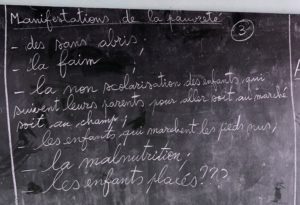 Manifestations de la pauvreté
3
- des sans abris,
- la faim ;
- la non scolarisation des enfants, qui
suivent leurs parents pour aller soit au marché
soit au champ ;
- les enfants qui marchent les pieds nus,
- la malnutrition ;
les enfants placés ???